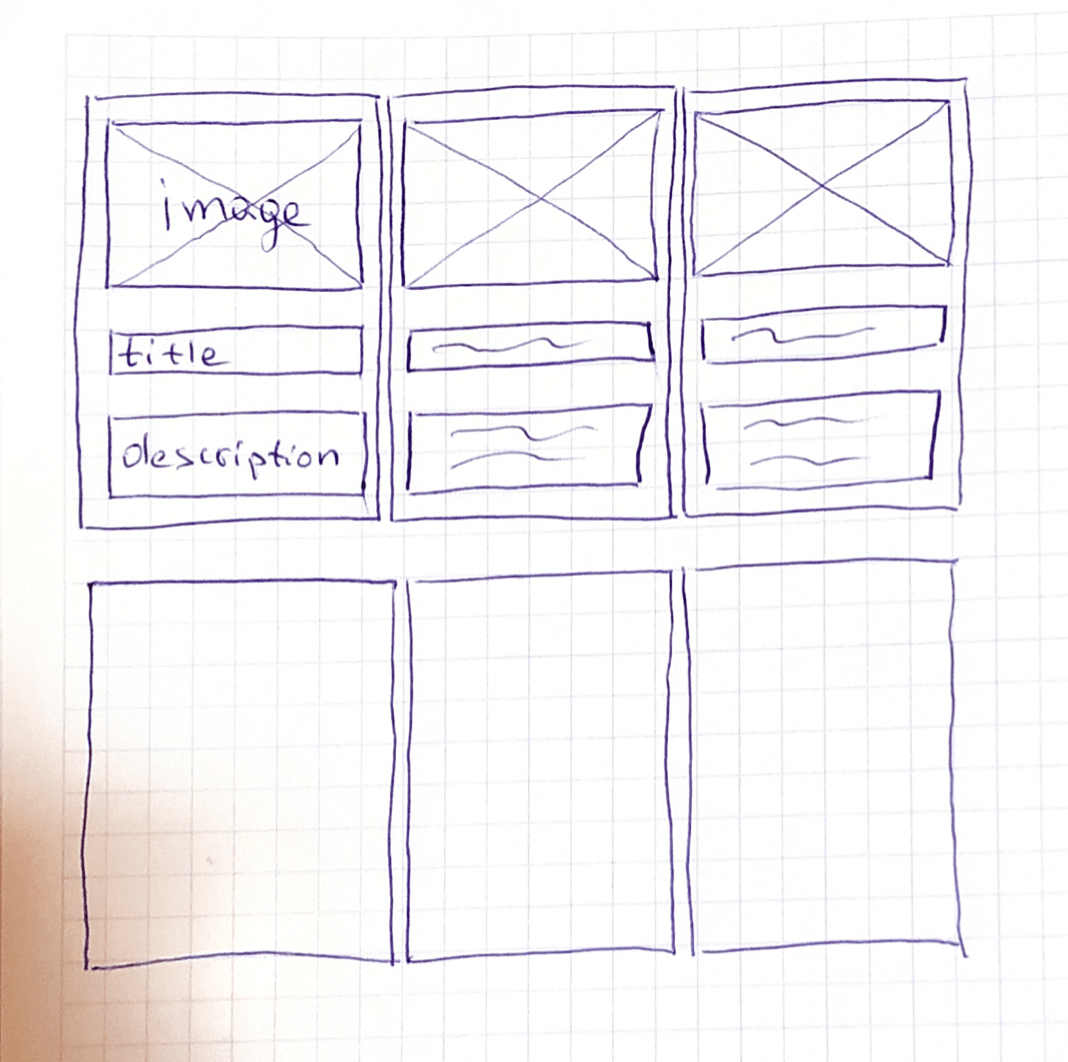 image
title
description